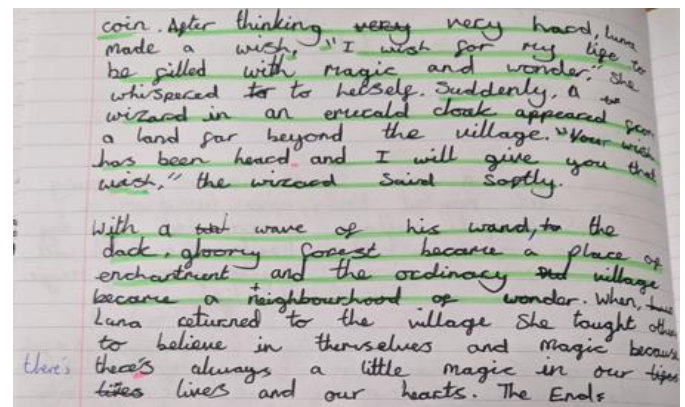 coin. After thinking very very hard, luna
made a wish, "I wish for my life to
be filled with magic and wonder." She
whispered to to herself. Suddenly, a
wizard in an emerald cloak appeared from
a land far beyond the village. "Your wish
has been heard and I will give you that
wish," the wizard said softly.
With a wave of his wand, to the
dark, gloomy forest became a place of
enchantment and the ordinary village
became a neighbourhood of wonder. When,
Luna returned to the village She taught others
to believe in themselves and magic because
there's there's always a little magic in our
lives and our hearts. The End